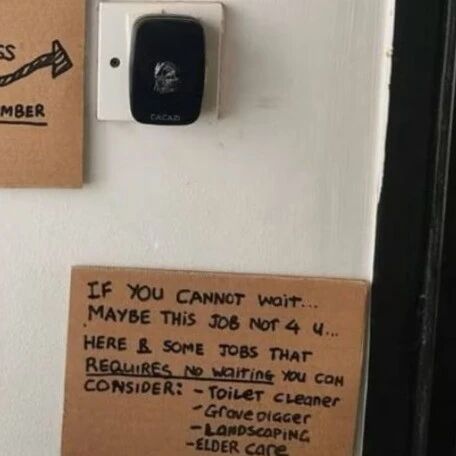 SS
MBER
CACAZI
IF YOU CANNOT wait...
MAYBE THIS JOB NOT 4 U...
HERE R SOME JOBS THAT
REQUIRES NO waiting YOU CAN
CONSIDER: - TOILET cleaner
- Gravedigger
- LANDSCAPING
- ELDER care